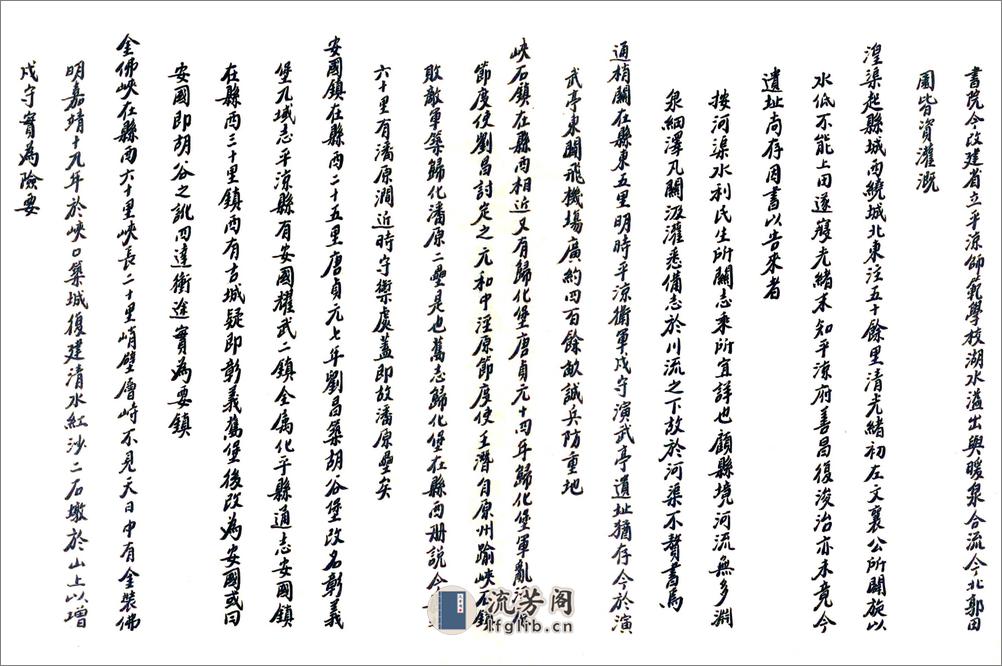 書院今改建省立平涼師範學校湖水溢出與暖泉合流今北郭田
園皆資灌溉
湟渠起縣城西繞城北東注五十餘里清光緒初左文襄公所開旋以
水低不能上田遂廢光緒末知平涼府善昌復浚治亦未竟今
遺址尚存用書以告來者
按河渠水利民生所關志乘所宜詳也顧縣境河流無多淵
泉細澤凡關汲灌悉備志於川流之下故於河渠不贅書焉
通梢關在縣東五里明時平涼衛軍戍守演武亭遺址猶存今於演
武亭東闢飛機場廣約四百餘畝誠兵防重地
峽石鎮在縣西相近又有歸化堡唐貞元十四年歸化堡軍亂涇原
節度使劉昌討定之元和中涇原節度使王潛自原州踰峽石鎮
敗敵軍築歸化潘原二壘是也舊志歸化堡在縣西册說今
六十里有潘原澗近時守禦處蓋即故潘原壘矣
安國鎮在縣西二十五里唐貞元七年劉昌築胡谷堡改名彰義
堡九域志平涼縣有安國耀武二鎮今屬化平縣通志安國鎮
在縣西三十里鎮西有古城疑即彰義舊堡後改為安國或曰
安國即胡谷之訛四達衝途實為要鎮
金佛峽在縣西六十里峽長二十里峭壁儈峙不見天日中有金裝佛
明嘉靖十九年於峽口築城復建清水紅沙二石墩於山上以增
戍守實為險要
流芳閣
lfglib.cn